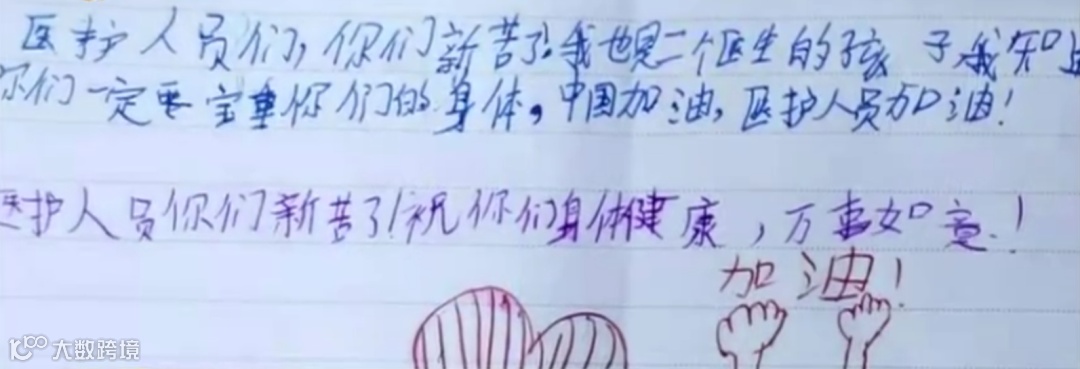 医护人员们,你们新苦了!我也是一个医生的孩子我知
你们一定要宝重你们的身体,中国加油,医护人员加油!
医护人员你们新苦了!祝你们身体健康,万事如意.!
加油!
大数跨境